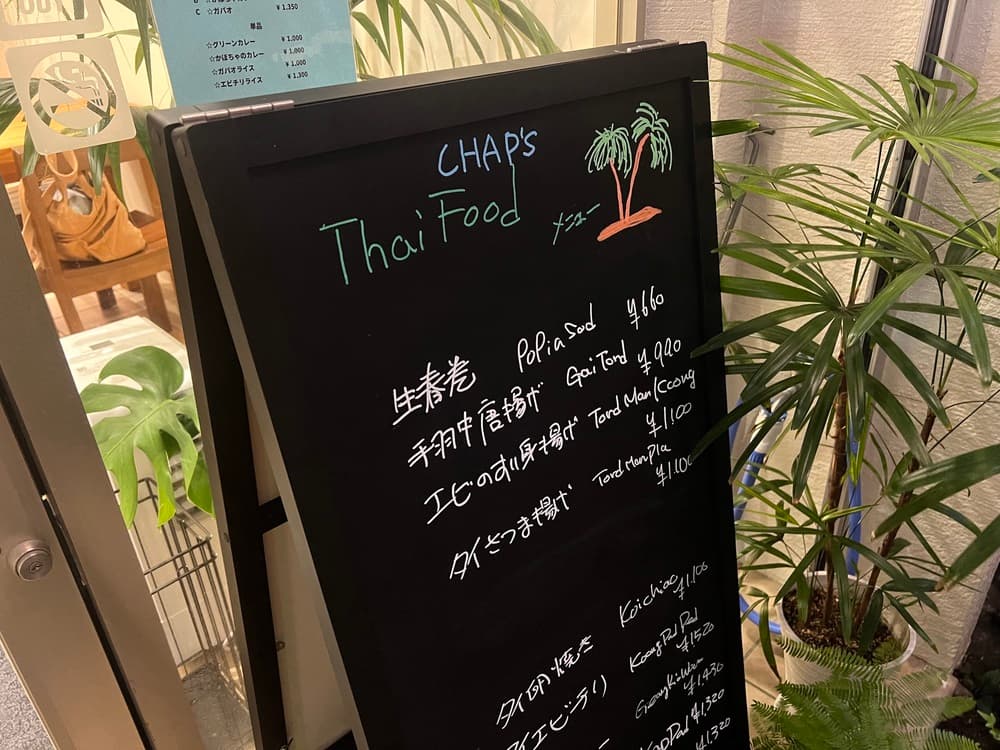 C ☆ガパオ ¥1,350
単品
☆グリーンカレー ¥1,000
☆かぼちゃのカレー ¥1,000
☆ガパオライス ¥1,000
☆エビチリライス ¥1,300
CHAP'S
Thai Food メニュー
生春巻 PoPia Sod ¥660
手羽中唐揚げ Gai Tord ¥990
エビのすり身揚げ Tord Man Koong
¥1,100
タイさつま揚げ Tord Man Pla
¥1,100
タイ卵焼き Kaichiao ¥1,100
タイエビチリ Koong Pad
¥1,520
¥1,430
Pad ¥1,320
¥1,320